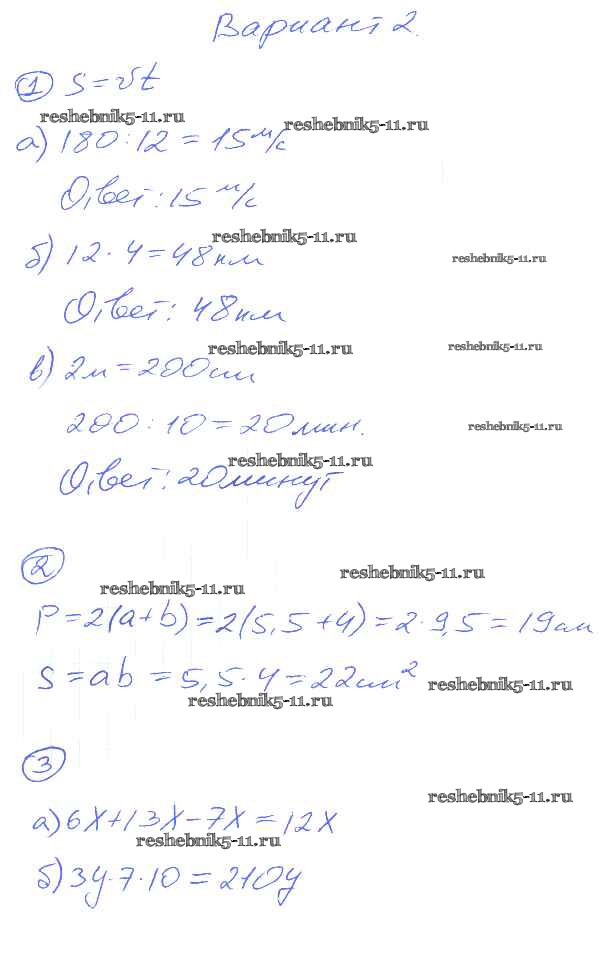 Вариант 2.
① S = vt
reshebnik5-11.ru
а) 180 : 12 = 15 м/с
reshebnik5-11.ru
Ответ: 15 м/с
reshebnik5-11.ru
б) 12 · 4 = 48 км
reshebnik5-11.ru
Ответ: 48 км
reshebnik5-11.ru
reshebnik5-11.ru
в) 2м = 200см
200 : 10 = 20 мин.
reshebnik5-11.ru
reshebnik5-11.ru
Ответ: 20 минут
②
reshebnik5-11.ru
reshebnik5-11.ru
P = 2(a+b) = 2(5,5+4) = 2 · 9,5 = 19 см
S = ab = 5,5 · 4 = 22 см²
reshebnik5-11.ru
reshebnik5-11.ru
③
reshebnik5-11.ru
а) 6x + 13x - 7x = 12x
reshebnik5-11.ru
б) 3y · 7 · 10 = 210y